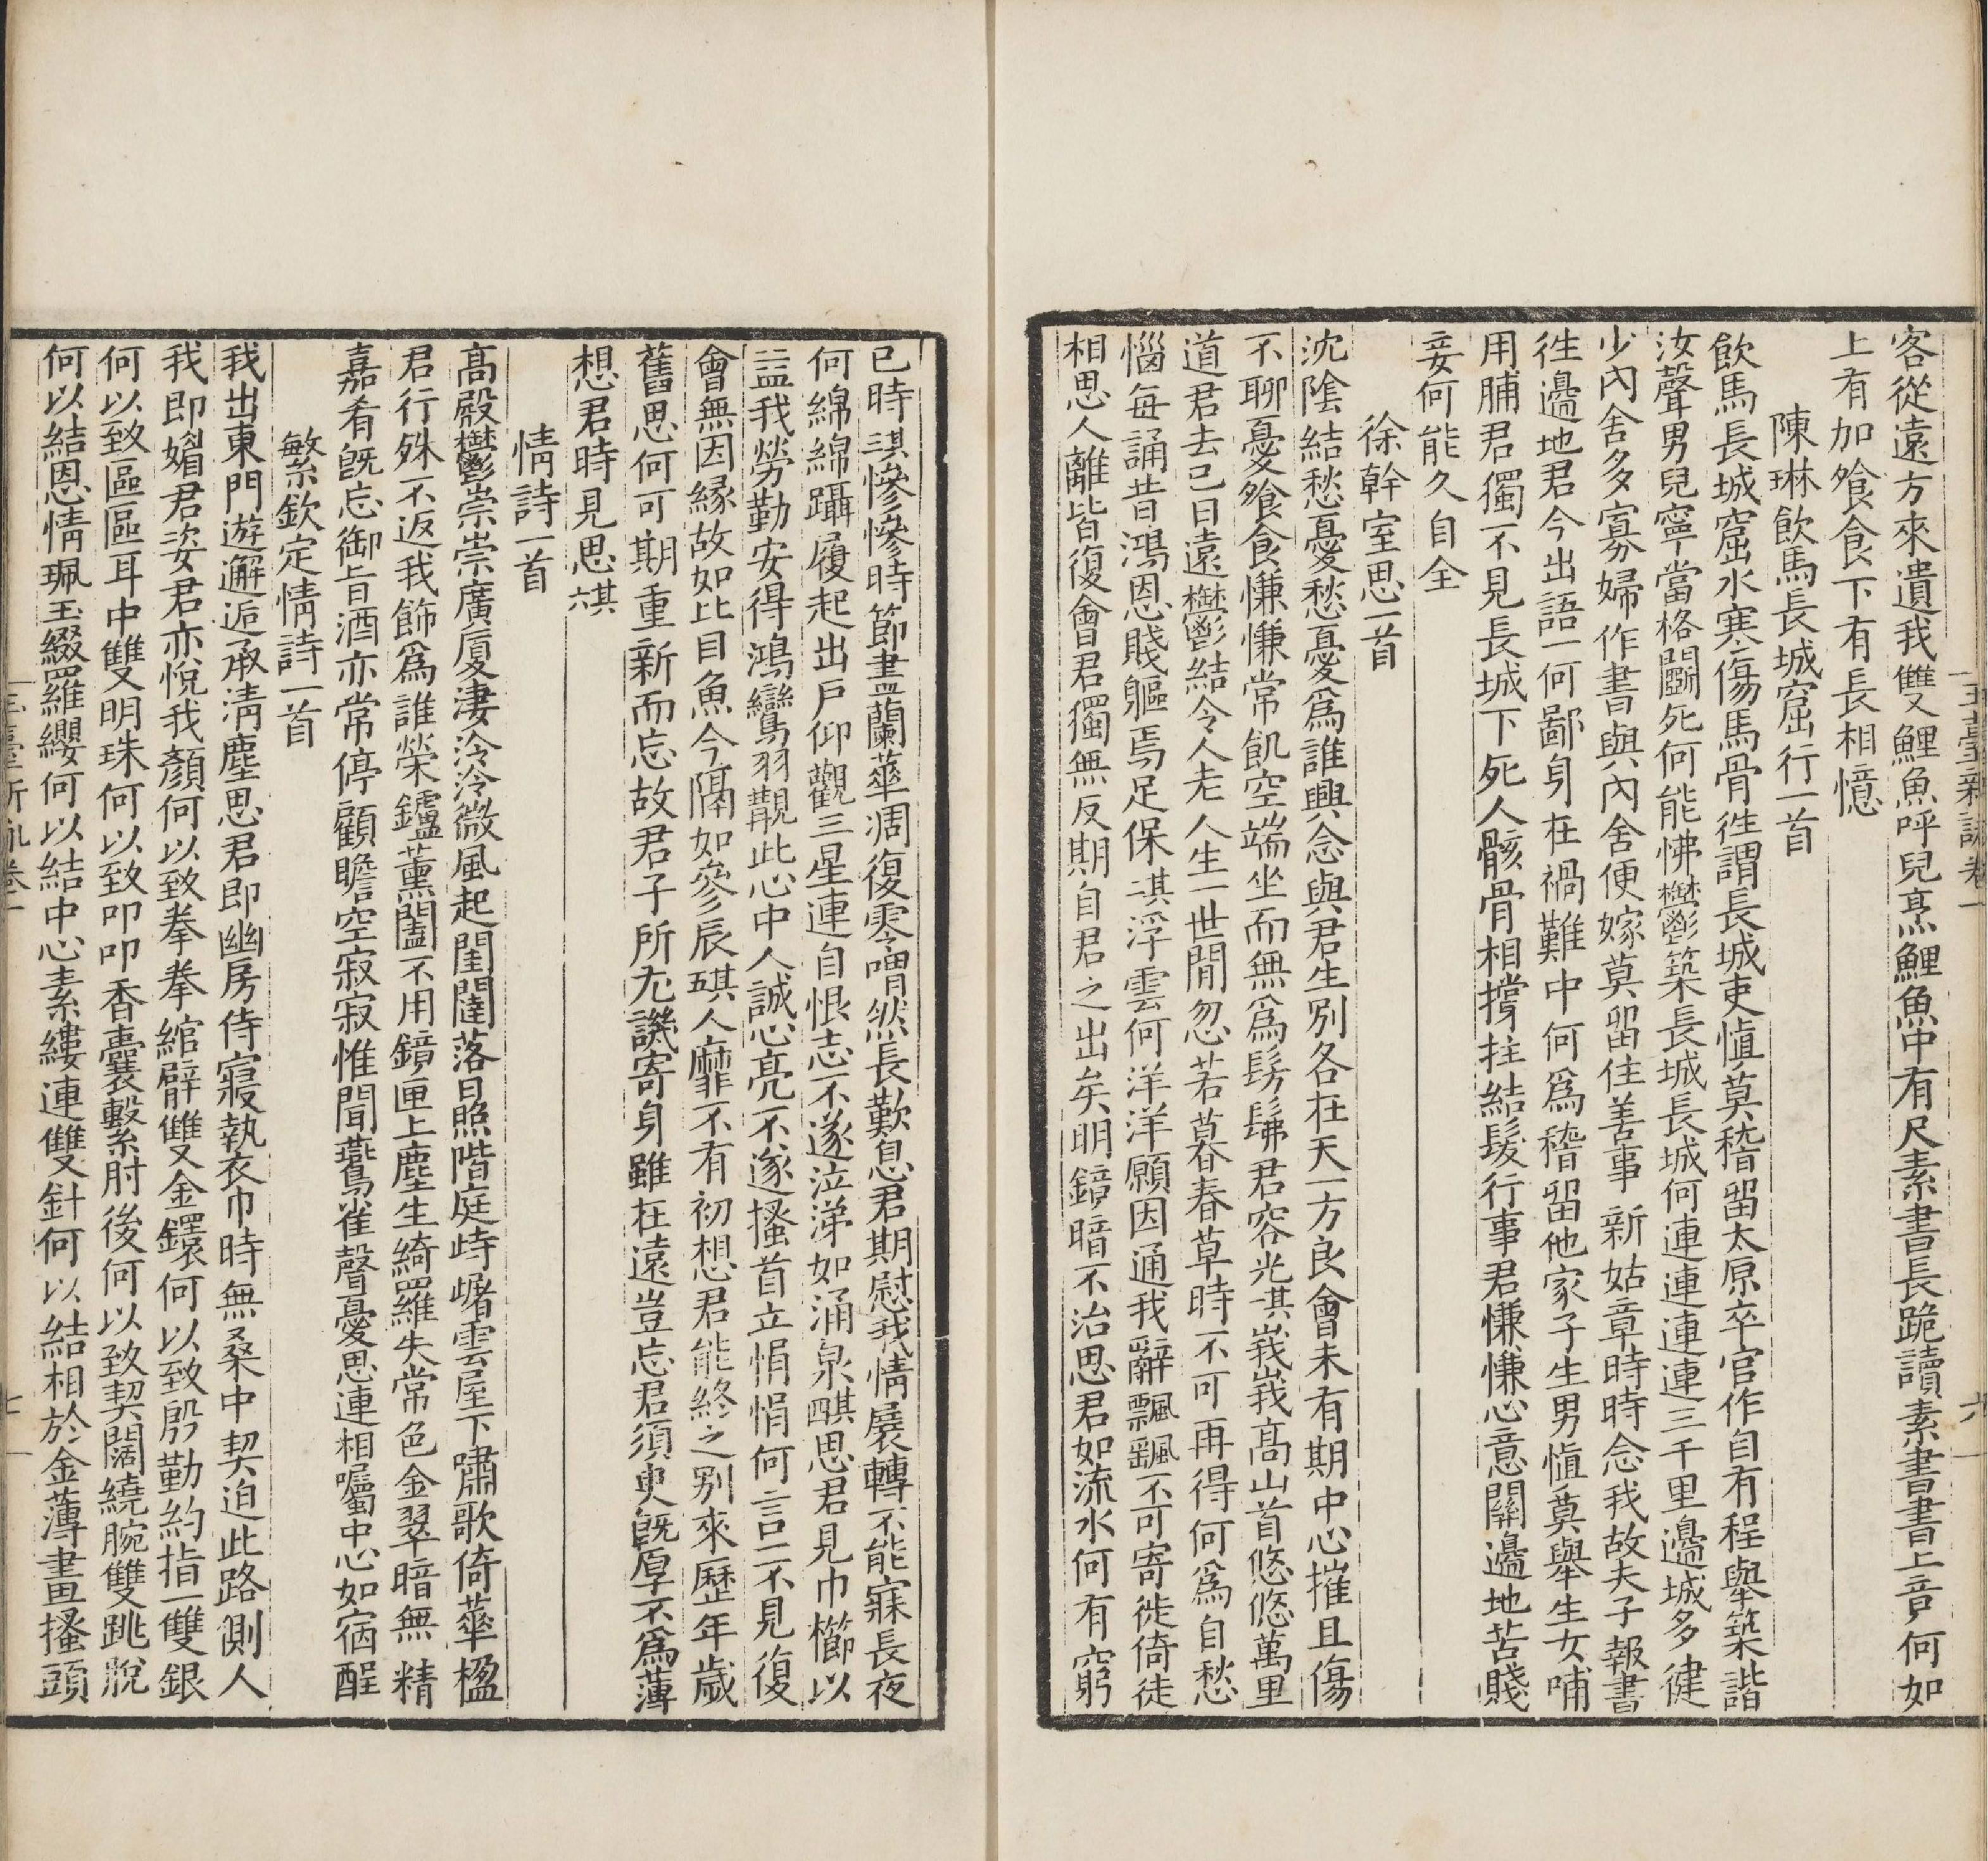 客從遠方來遺我雙鯉魚呼兒烹鯉魚中有尺素書長跪讀素書書上竟何如
上有加飧食下有長相憶
陳琳飲馬長城窟行一首
飲馬長城窟水寒傷馬骨徃謂長城吏愼莫稽留太原卒官作自有程舉築諧
汝聲男兒寧當格鬭死何能怫鬱築長城長城何連連連連三千里邊城多徤
少內舍多寡婦作書與內舍便嫁莫留住善事新姑章時時念我故夫子報書
徃邊地君今出語一何鄙身在禍難中何爲稽留他家子生男愼莫舉生女哺
用脯君獨不見長城下死人骸骨相撐拄結髮行事君慊慊心意關邊地苦賤
妾何能久自全
徐幹室思一首
沈陰結愁憂愁憂爲誰興念與君生別各在天一方良會未有期中心摧且傷
不聊憂飧食慊慊常飢空端坐而無爲髣髴君容光其一峩峩高山首悠悠萬里
道君去已日遠鬱結令人老人生一世間忽若暮春草時不可再得何爲自愁
惱每誦昔鴻恩賤軀焉足保其二浮雲何洋洋願因通我辭飄颻不可寄徙倚徒
相思人離皆復會君獨無反期自君之出矣明鏡暗不治思君如流水何有窮
已時其三慘慘時節盡蘭華凋復零喟然長歎息君期慰我情展轉不能寐長夜
何綿綿躡履起出戶仰觀三星連自恨志不遂泣涕如涌泉其四思君見巾櫛以
益我勞勤安得鴻鸞羽覯此心中人誠心亮不遂搔首立悁悁何言一不見復
會無因緣故如比目魚今隔如參辰其五人靡不有初想君能終之別來歷年歲
舊思何可期重新而忘故君子所尤譏寄身雖在遠豈忘君須臾旣厚不爲薄
想君時見思其六
情詩一首
高殿鬱崇崇廣廈淒泠泠微風起閨闥落日照階庭峙崌雲屋下嘯歌倚華楹
君行殊不返我飾爲誰榮鑪薰闔不用鏡匣上塵生綺羅失常色金翠暗無精
嘉肴旣忘御旨酒亦常停顧瞻空寂寂惟聞鷰雀聲憂思連相囑中心如宿酲
繁欽定情詩一首
我出東門遊邂逅承淸塵思君即幽房侍寢執衣巾時無桑中契迫此路側人
我即媚君姿君亦悅我顏何以致拳拳綰臂雙金鐶何以致殷勤約指一雙銀
何以致區區耳中雙明珠何以致叩叩香囊繫肘後何以致契闊繞腕雙跳脫
何以結恩情珮玉綴羅纓何以結中心素縷連雙針何以結相於金薄畫搔頭
玉臺新詠卷一
六
玉臺新詠卷一
七